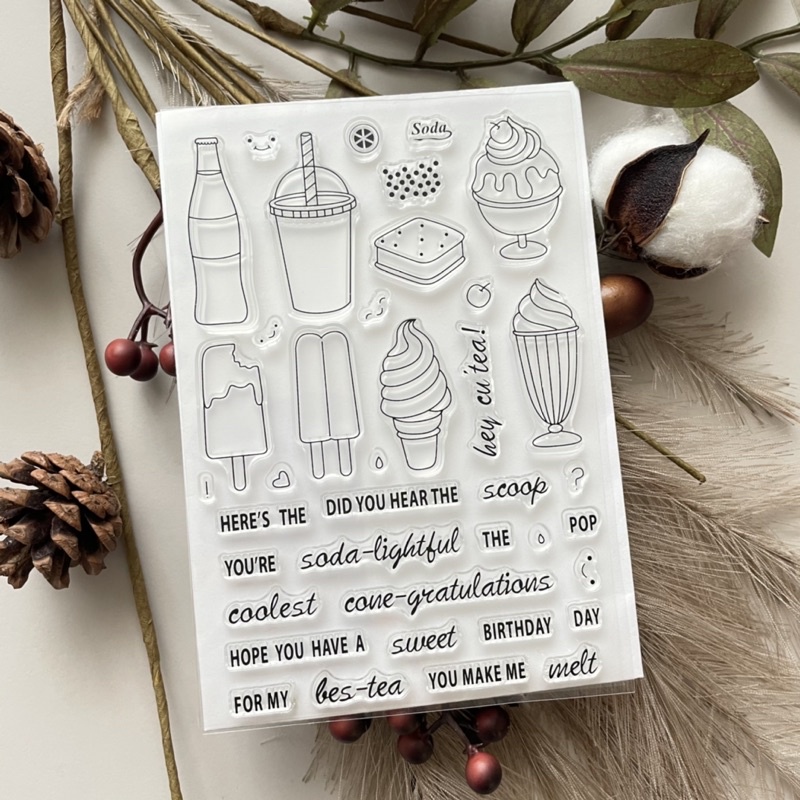 Soda
hey, cu'tea!
!
?
HERE'S THE DID YOU HEAR THE scoop
YOU'RE soda-lightful THE POP
coolest cone-gratulations
HOPE YOU HAVE A sweet BIRTHDAY DAY
FOR MY bes-tea YOU MAKE ME melt